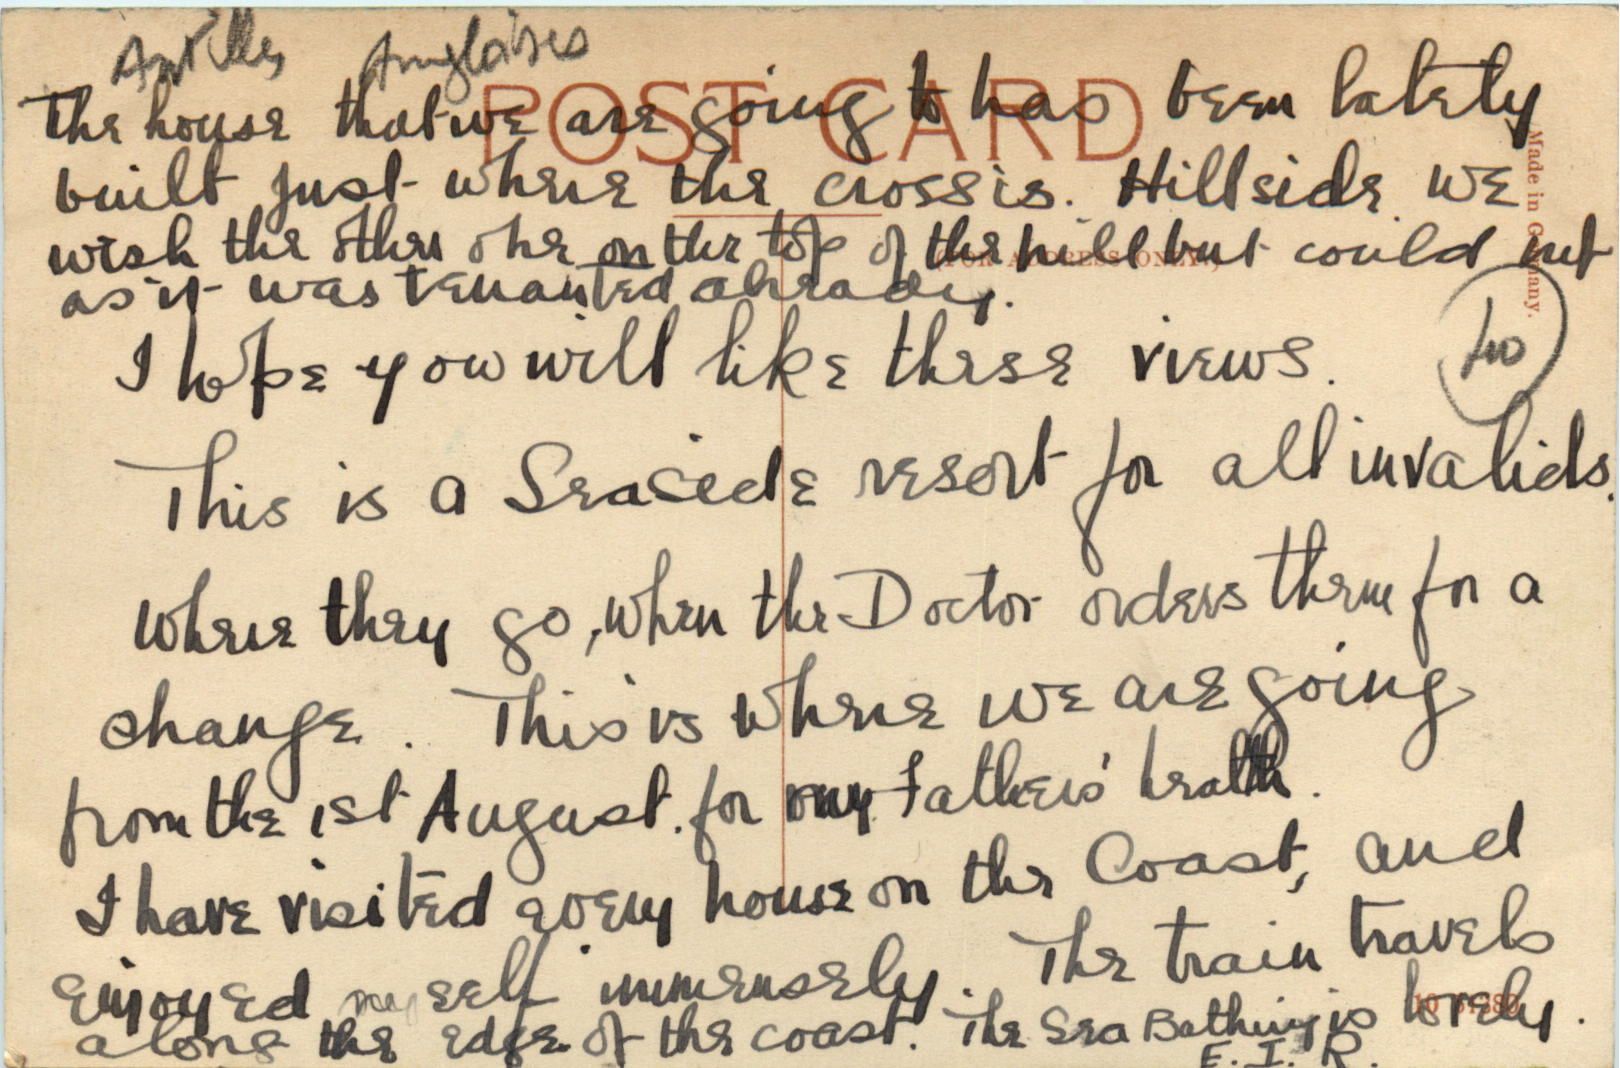 Antilles Anglaises
POST CARD
The house that we are going to has been lately
built just where the cross is. Hillside. We
wish the other one on the top of the hill but could not
as it was tenanted already.
(FOR ADDRESS ONLY.)
Made in Germany.
I hope you will like these views.
This is a Seaside resort for all invalids.
where they go, when the Doctor orders them for a
change. This is where we are going
from the 1st August. for my Father's health.
I have visited every house on the Coast, and
enjoyed myself immensely. The train travels
along the edge of the coast. The Sea Bathing is lovely.
E. I. R.